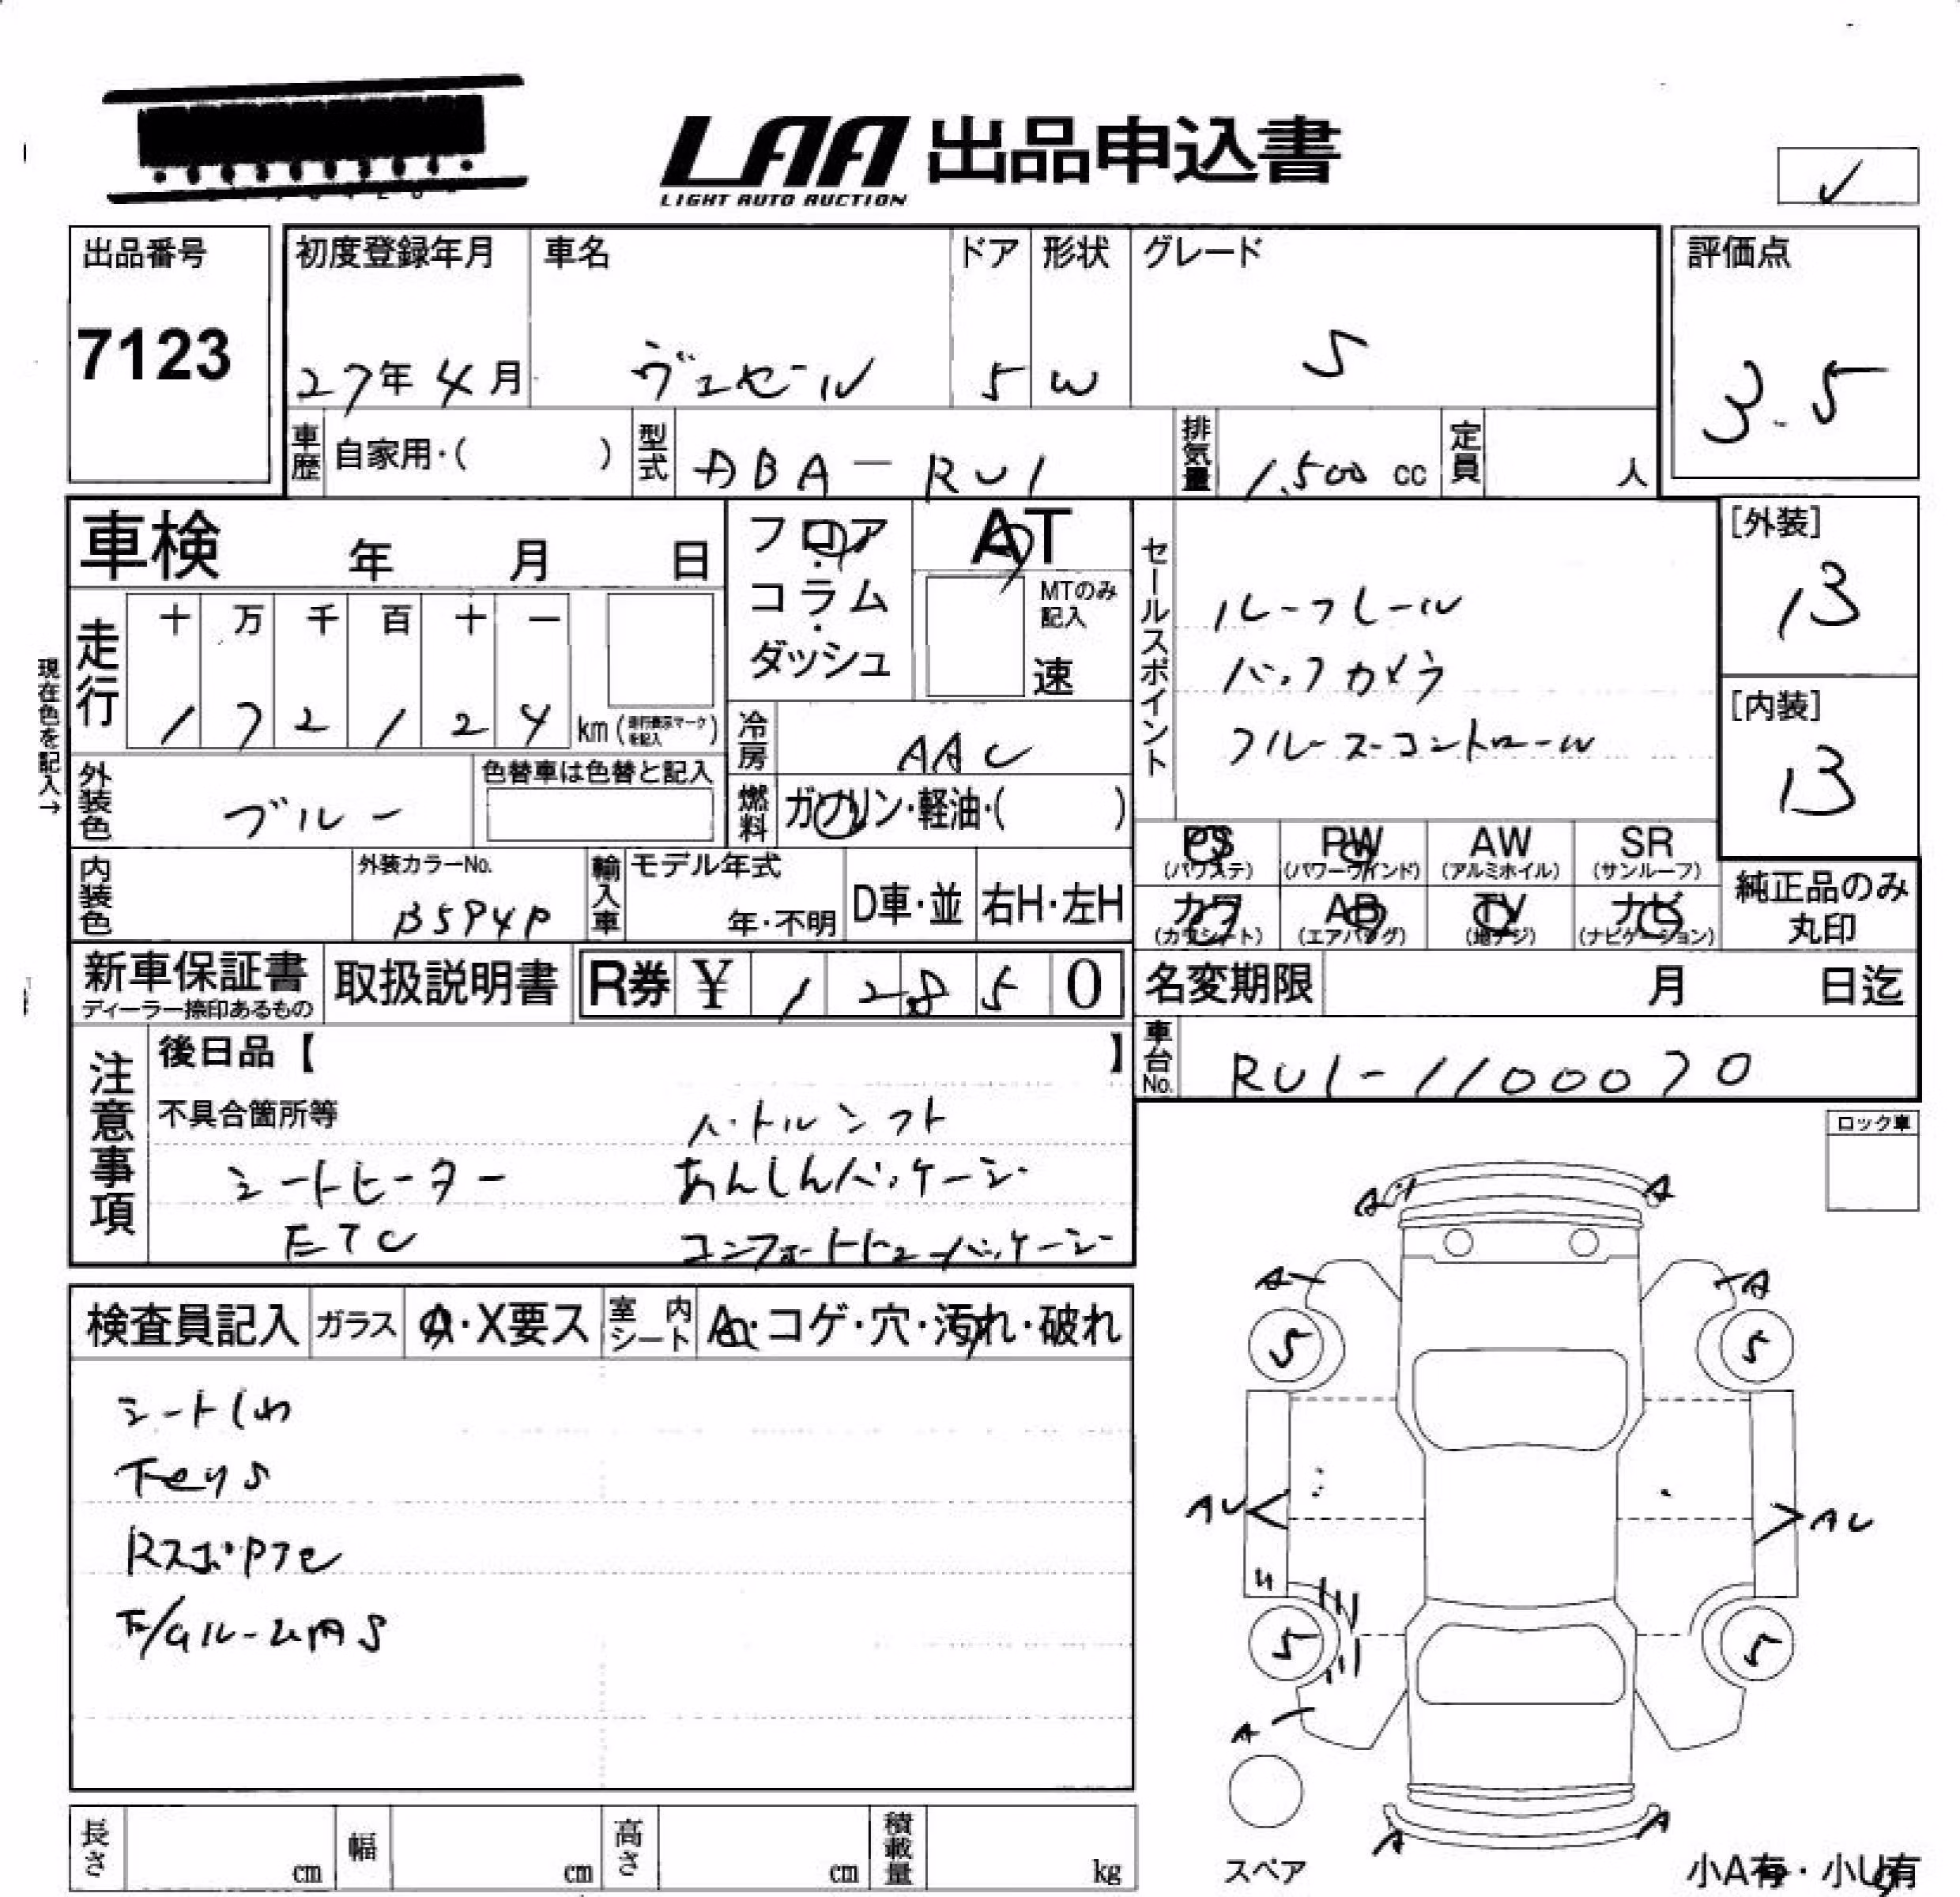 LAA 出品申込書
LIGHT AUTO AUCTION
✓
出品番号
7123
初度登録年月
27年 4月
車名
ヴェゼール
ドア
5
形状
W
グレード
S
評価点
3.5
車歴 自家用・( )
型式 DBA-RU1
排気量 1,500 cc
定員 人
車検 年 月 日
フロア・コラム・ダッシュ
AT
MTのみ記入
速
セールスポイント
ルーフレール
バックカメラ
クルーズコントロール
[外装]
B
[内装]
B
現在色を記入→
走行
十 万 千 百 十 一
1 7 2 1 2 4 km (走行表示マークを記入)
冷房 AAC
外装色 ブルー
色替車は色替と記入
燃料 ガソリン・軽油・( )
PS (パワステ)
PW (パワーウインド)
AW (アルミホイル)
SR (サンルーフ)
カワ (カワシート)
AB (エアバッグ)
TV (地デジ)
ナビ (ナビゲーション)
純正品のみ丸印
内装色
外装カラーNo.
B594P
輸入車
モデル年式
年・不明
D車・並
右H・左H
新車保証書
ディーラー捺印あるもの
取扱説明書
R券 ¥ 1 2 8 5 0
名変期限 月 日迄
車台No. RU1-1100070
注意事項
後日品【 】
不具合箇所等
パドルシフト
シートヒーター
あんしんパッケージ
ETC
コンフォートビューパッケージ
ロック車
検査員記入
ガラス A・X要ス
室内シート A・コゲ・穴・汚れ・破れ
シートしわ
下キズS
RスポPTe
E/Gルーム内S
A A
A A
5 5
AU AU
5 5
A
A A
スペア
小A有・小U有
長さ cm
幅 cm
高さ cm
積載量 kg